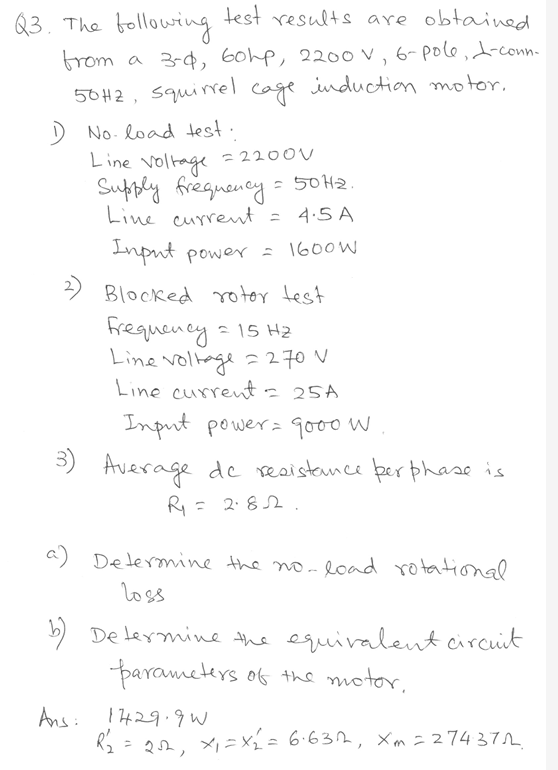 Q3. The following test results are obtained
from a 3-φ, 60hp, 2200 V, 6-pole, λ-conn.
50HZ, squirrel cage induction motor.
1) No-load test:
Line voltage = 2200V
Supply frequency = 50HZ.
Line current = 4.5 A
Input power = 1600W
2) Blocked rotor test
frequency = 15 HZ
Line voltage = 270 V
Line current = 25A
Input power = 9000 W.
3) Average dc resistance per phase is
R₁ = 2.8 Ω.
a) Determine the no-load rotational
loss
b) Determine the equivalent circuit
parameters of the motor.
Ans: 1429.9 W
R₂' = 2Ω, X₁ = X₂' = 6.63Ω, Xm = 274.37Ω.